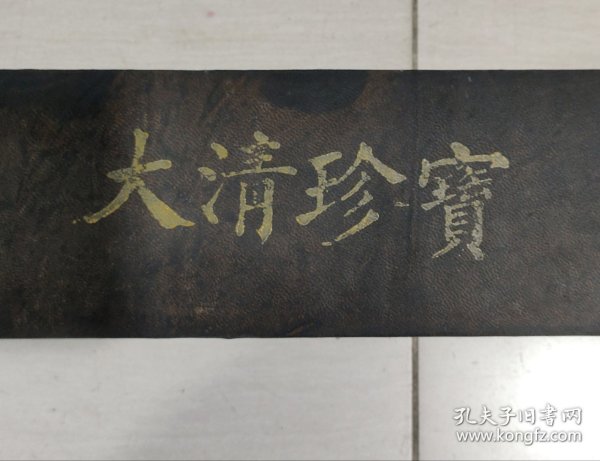 大清珍寶
孔夫子旧书网
www.kongfz.com